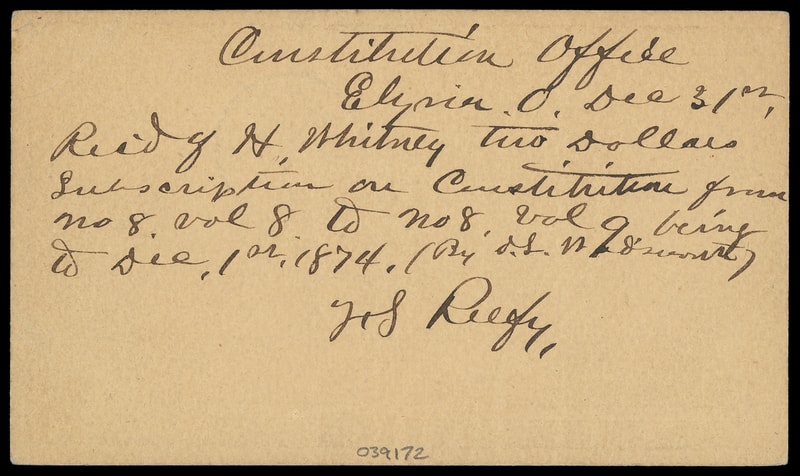 Constitution Office
Elyria. O. Dec 31st,
Rec'd of H, Whitney two Dollars
Subscription on Constitution from
no 8, vol 8 to no 8, vol 9 being
to Dec, 1st, 1874, (By S. Wadsworth)
Reefy,
039172